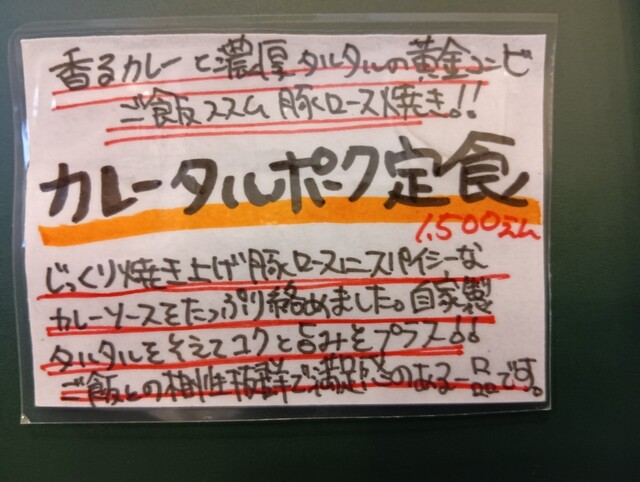 香るカレーと濃厚タルタルの黄金コンビ
ご飯ススム豚ロース焼き!!
カレータルポーク定食
1,500エん
じっくり焼き上げ豚ロースにスパイシーな
カレーソースをたっぷり絡めました。自家製
タルタルをそえてコクと旨みをプラス!!
ご飯との相性抜群で満足感のある一品です。